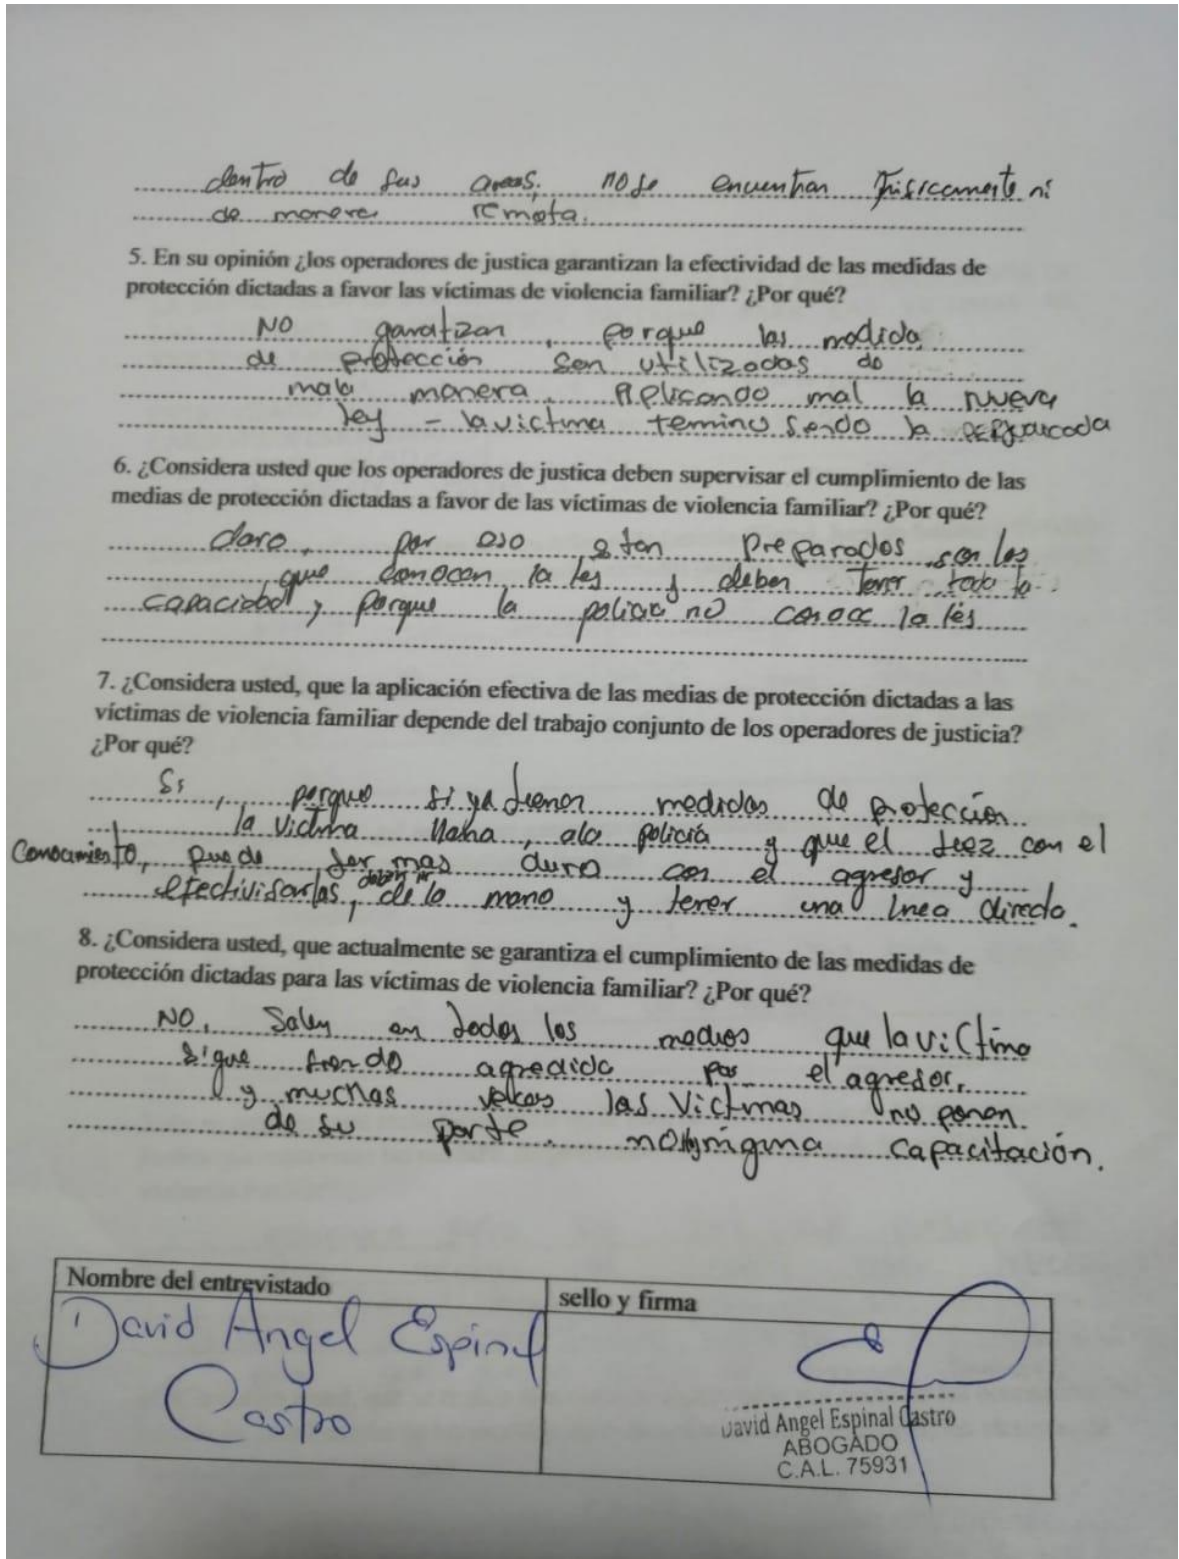 dentro de sus areas. no se encuentran fisicamente ni
de manera remota.
5. En su opinión ¿los operadores de justica garantizan la efectividad de las medidas de
protección dictadas a favor las víctimas de violencia familiar? ¿Por qué?
NO garatizan, porque las medida
de protección son utilizadas de
mala manera. Aplicando mal la nueva
ley - la victima termino siendo la
6. ¿Considera usted que los operadores de justica deben supervisar el cumplimiento de las
medias de protección dictadas a favor de las víctimas de violencia familiar? ¿Por qué?
claro, por eso estan preparados son los
que conocen la ley y deben tener toda la
capacidad y porque la policia no conoce la ley
7. ¿Considera usted, que la aplicación efectiva de las medias de protección dictadas a las
víctimas de violencia familiar depende del trabajo conjunto de los operadores de justicia?
¿Por qué?
Si, porque si ya tienen medidas de protección
la victima llama, a la policía y que el Juez con el
conocamiento, puede ser mas duro con el agresor y
efectivisarlas, deben ir de la mano y tener una linea directa.
8. ¿Considera usted, que actualmente se garantiza el cumplimiento de las medidas de
protección dictadas para las víctimas de violencia familiar? ¿Por qué?
NO, Salen en todos los medios que la victima
sigue siendo agredida por el agresor,
y muchas veces las victimas no ponen
de su parte. no hay ninguna capacitación.
Nombre del entrevistado
sello y firma
David Angel Espinal
Castro
David Angel Espinal Castro
ABOGADO
C.A.L. 75931